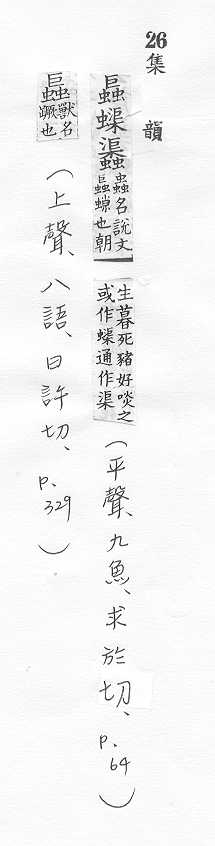 26 集韻
蟝 蟲名說文
也朝
生暮死豬好啖之
或作蟝通作渠
(平聲、九魚、求於切、p.64)
獸名
也
(上聲、八語、日許切、p.329)